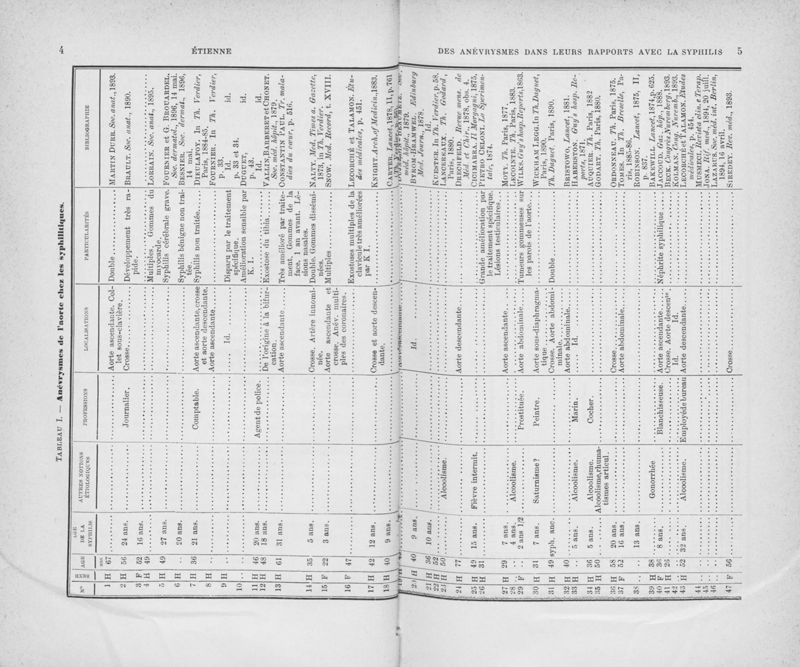 4 ÉTIENNE
DES ANÉVRYSMES DANS LEURS RAPPORTS AVEC LA SYPHILIS 5
TABLEAU I. — Anévrysmes de l'aorte chez les syphilitiques.
Nos SEXES AGE AGE DE LA SYPHILIS AUTRES NOTIONS ÉTIOLOGIQUES PROFESSIONS LOCALISATIONS PARTICULARITÉS BIBLIOGRAPHIE
ans
1 H 67 Aorte ascendante. Col- Double MARTIN DURR. Soc. anat., 1893.
let sous-clavière.
2 H 56 24 ans. Journalier. Crosse. Développement très ra- BRAULT. Soc. anat., 1890.
pide.
3 F 52 16 ans.
4 H 49 Multiples. Gommes du LORRAIN. Soc. anat., 1895.
myocarde.
5 H 49 27 ans. Syphilis cérébrale grave. FOURNIER et G. BROUARDEL.
Soc. dermatol., 1896, 14 mai.
6 H 20 ans. Syphilis bénigne non trai- BESNIER. Soc. dermat., 1896,
tée 14 mai.
7 H 36 21 ans. Comptable. Aorte ascendante, crosse Syphilis non traitée. DREULAFOY. In Th. Verdier,
et aorte descendante. Paris, 1884-85.
8 H Aorte ascendante. FOURNIER. In Th. Verdier,
p. 33.
9 H Id. Disparu par le traitement id. id.
spécifique. p. 33 et 34.
10 Amélioration sensible par DUGUET, id.
K. I. p. 44.
11 H 46 20 ans. Agent de police. id. id.
12 H 48 18 ans. De l'origine à la bifur- Exostose du tibia. VALLIN, BARBERET et CHONET.
cation. Soc. méd. hôpit., 1879.
13 H 61 31 ans. Aorte ascendante Très amélioré par traite- CONSTANTIN PAUL. Tr. mala-
ment. Gommes de la dies du cœur, p. 516.
face, 1 an avant. Lé-
sions nasales.
14 H 35 5 ans. Crosse. Artère innomi- Double. Gommes disséminées. NALTY. Med. Times a. Gazette,
née. 1873, in Th. Verdier.
15 F 22 3 ans. Aorte ascendante et Multiples SNOW. Med. Record, t. XVIII.
crosse. Anév. multi-
ples des coronaires.
16 F 47 Exostoses multiples de la LECORCHÉ et TALAMON. Étu-
clavicule très améliorées des médicales, p. 451.
par K I.
17 H 42 12 ans. Crosse et aorte descen- KNIGHT. Arch. of Medicin., 1883.
dante.
18 H 40 9 ans. CARTER. Lancet, 1878, II, p. 761
20 H 40 9 ans. Id. BYROM-BRAMWEL. Edinburg
Med. Journ., 1878.
21 H 36 10 ans. Id.
22 H 52 KUESSNER. In Th. Verdier, p. 58.
23 H 50 Alcoolisme. LANCEREAUX. Th. Godard,
Paris, 1880.
24 H 77 Aorte descendante DRECHFELD. Revue mens. de
Méd. et Chir., 1878, obs. 4.
25 H 49 15 ans. Fièvre intermit. CHIMARRI. Il Morgagni, 1875.
26 H 31 Grande amélioration par PIETRO CELONI. Lo Sperimen-
le traitement spécifique. tale, 1874.
Lésions testiculaires.
27 H 29 7 ans. Aorte ascendante MOTY. Th. Paris, 1877.
28 H 4 ans. Alcoolisme. LECOINTE. Th. Paris, 1883.
29 F 2 ans 1/2 Prostituée. Aorte abdominale. Tumeurs gommeuses sur WILKS. Guy's hosp. Reports, 1863.
les parois de l'aorte.
30 H 31 7 ans. Saturnisme? Peintre. Aorte sous-diaphragma- WICKAM LEGG. In Th. Duguet,
tique Paris, 1890.
31 H 49 Syph. anc. Crosse. Aorte abdomi- Double Th. Duguet. Paris, 1890.
nale.
32 H 40 Aorte abdominale. BRISTOWO. Lancet, 1881.
33 H 5 ans. Alcoolisme. Marin. Id. HABERSTON. Guy's hosp. Re-
ports, 1871.
34 H 36 5 ans. Alcoolisme. Cocher. AUQUIER. Th. Paris, 1882
35 H 50 Alcoolisme, rhuma- GODART. Th. Paris, 1880.
tismes articul.
36 H 58 20 ans. Crosse. ORDONNEAU. Th. Paris, 1875.
37 F 52 16 ans. Aorte abdominale. TOMES. In Th. Bresselle, Pa-
ris, 1885-86.
38 13 ans. ROBINSON. Lancet, 1875, II,
p. 808.
39 H 38 Gonorrhée BAKEWILL. Lancet, 1874, p. 625.
40 F 36 8 ans. Blanchisseuse. Aorte ascendante Néphrite syphilique JACCOUD. Gaz. hôp., 1888.
41 H 26 Crosse. Aorte descente BECK. Congrès Nuremberg, 1893.
42 H Id. Id. KOLLMAN. Cong. Nuremb., 1893.
43 H 52 32 ans. Alcoolisme. Employé de bureau Aorte descendante. LECORCHÉ et TALAMON. Études
médicales, p. 454.
44 MUSMECI. Rivista clin. e Terap.
45 JONA. Rif. med., 1894, 20 juill.
46 LAZARUS. Med. int. Berlin,
1894, 16 avril.
47 F 56 Crosse SIREDEY. Rev. méd., 1893.